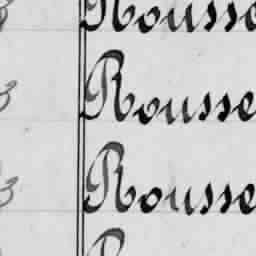 Rousse
3 Rousse
3 Rousse